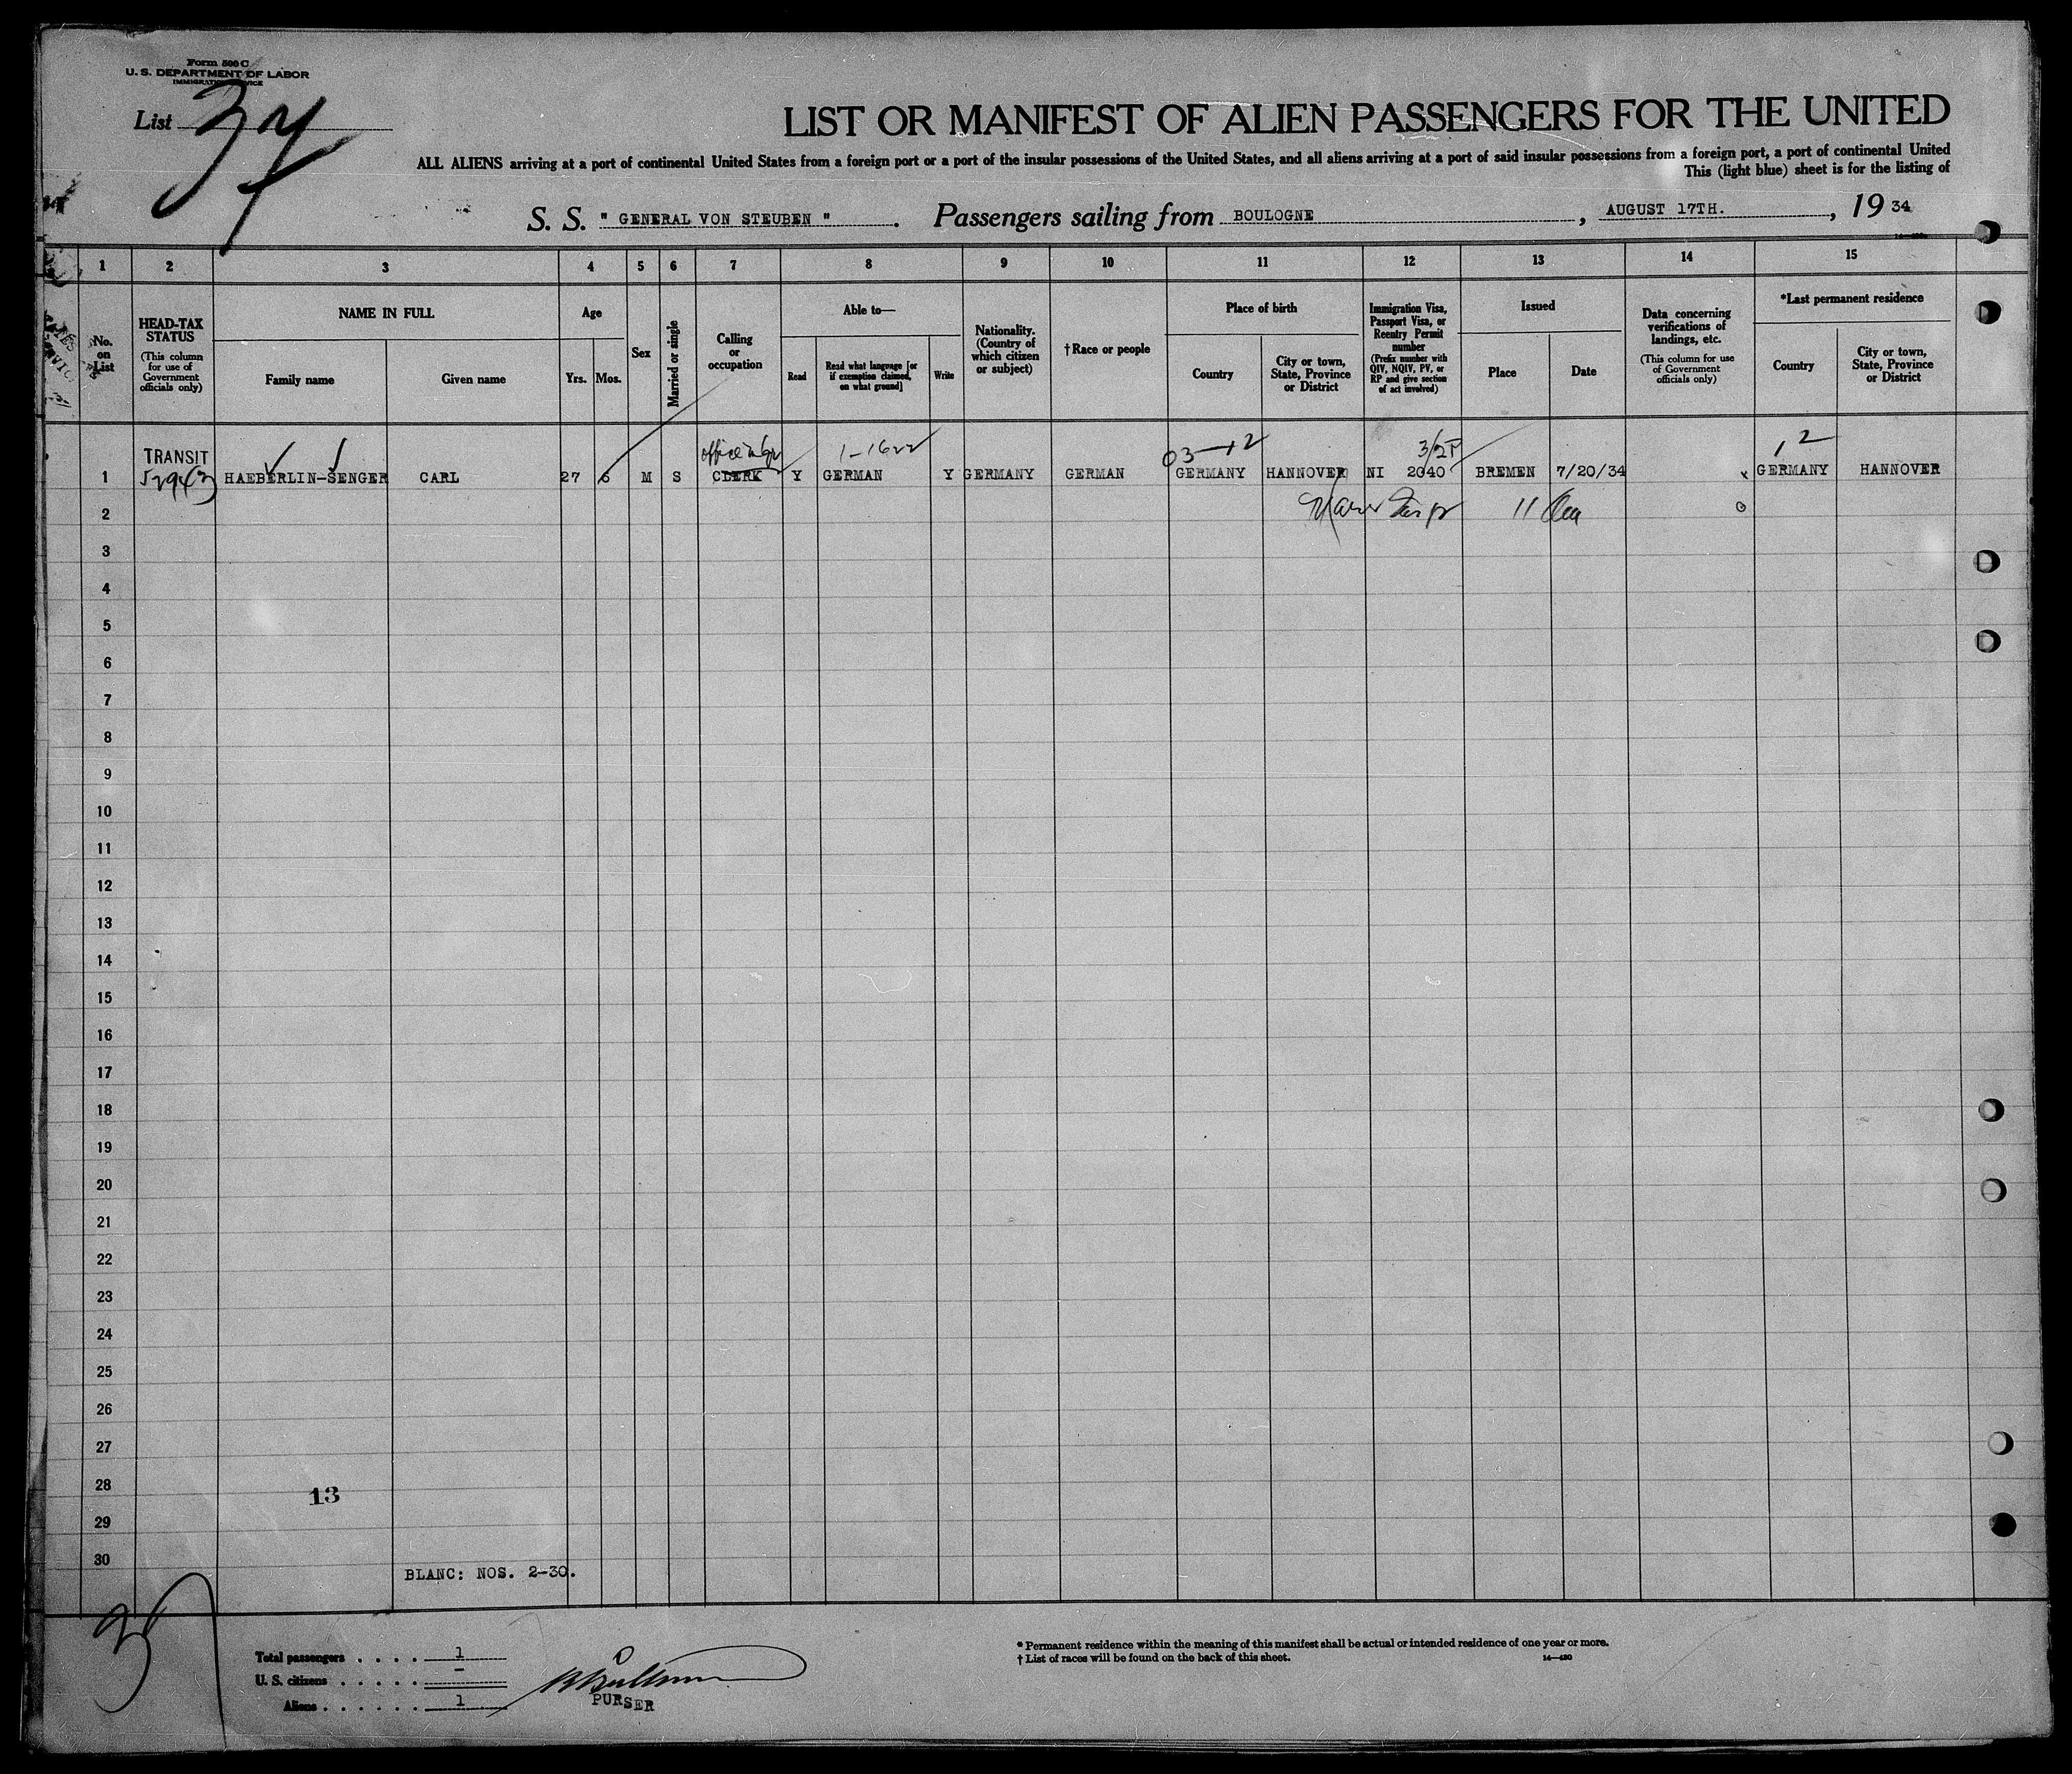 Form 500 C
U. S. DEPARTMENT OF LABOR
IMMIGRATION SERVICE
List 37
LIST OR MANIFEST OF ALIEN PASSENGERS FOR THE UNITED
ALL ALIENS arriving at a port of continental United States from a foreign port or a port of the insular possessions of the United States, and all aliens arriving at a port of said insular possessions from a foreign port, a port of continental United
This (light blue) sheet is for the listing of
S. S. " GENERAL VON STEUBEN " . Passengers sailing from BOULOGNE , AUGUST 17TH. , 19 34
1 2 3 4 5 6 7 8 9 10 11 12 13 14 15
No. on List
HEAD-TAX STATUS
(This column for use of Government officials only)
NAME IN FULL
Family name
Given name
Age
Yrs.
Mos.
Sex
Married or single
Calling or occupation
Able to—
Read
Read what language [or if exemption claimed, on what ground]
Write
Nationality. (Country of which citizen or subject)
†Race or people
Place of birth
Country
City or town, State, Province or District
Immigration Visa, Passport Visa, or Reentry Permit number
(Prefix number with QIV, NQIV, PV, or RP and give section of act involved)
Issued
Place
Date
Data concerning verifications of landings, etc.
(This column for use of Government officials only)
*Last permanent residence
Country
City or town, State, Province or District
TRANSIT 1-1622 03-12 3/2
1 HAEBERLIN-SENGER CARL 27 6 M S CLERK Y GERMAN Y GERMANY GERMAN GERMANY HANNOVER NI 2040 BREMEN 7/20/34 x GERMANY HANNOVER
2
3
4
5
6
7
8
9
10
11
12
13
14
15
16
17
18
19
20
21
22
23
24
25
26
27
28
13
29
30
BLANC: NOS. 2-30.
Total passengers . . . . 1
U. S. citizens . . . . . —
Aliens . . . . . . 1
PURSER
* Permanent residence within the meaning of this manifest shall be actual or intended residence of one year or more.
† List of races will be found on the back of this sheet.
14—430